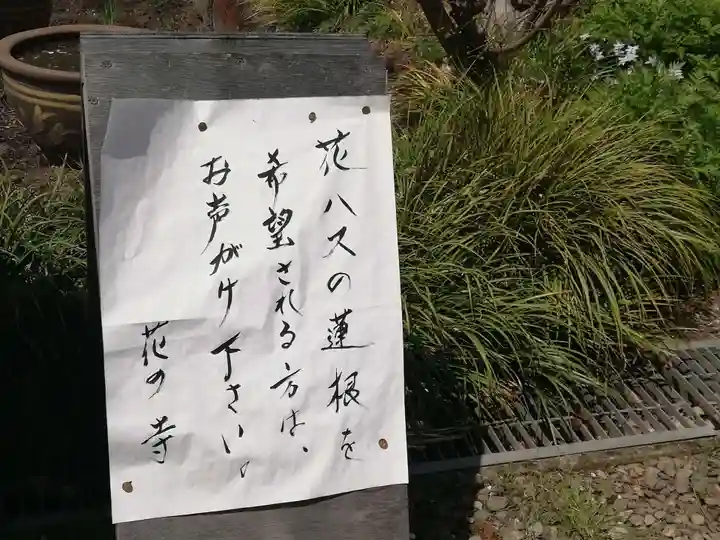 花ハスの蓮根を
希望される方は、
お声がけ下さい。
花の寺